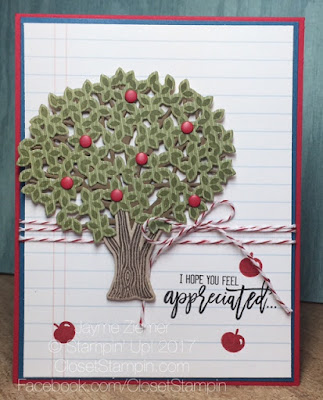 I HOPE YOU FEEL
appreciated...
Jayme Ziemer
© Stampin' Up! 2017
ClosetStampin.com
Facebook.com/ClosetStampin